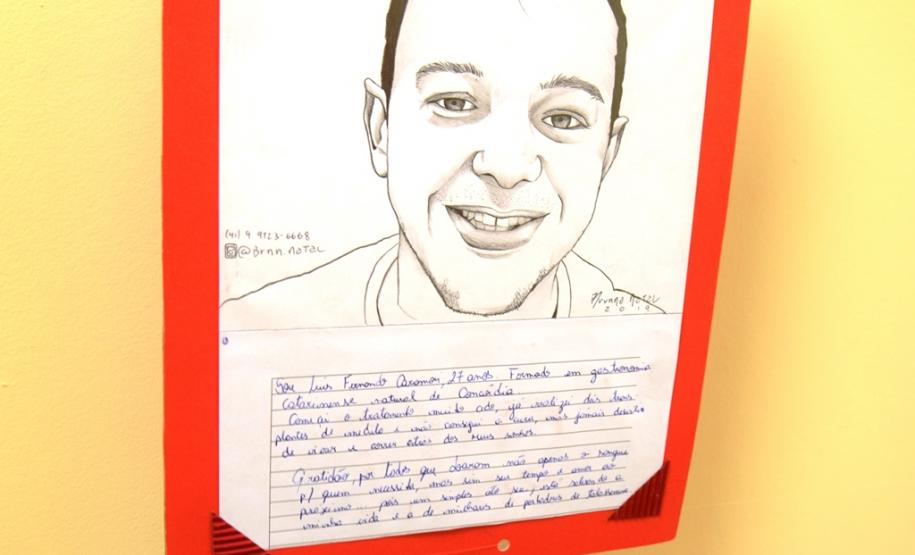 (41) 9 9123-6668
@Brnn.natal
Brunno Natal
2019
Sou Luis Fernando Caramori, 27 anos. Formado em gastronomia
catarinense natural de Concórdia
Começei o tratamento muito cedo, já realizei dois trans-
plantes de medula e não consegui a cura, mas jamais desisti
de viver e correr atras dos meus sonhos.
Gratidão, por todos que doarom não apenas o sangue
p/ quem necessita, mas sim seu tempo e amor ao
proximo... pois um simples ato seu, está salvando a
minha vida e a de milhares de portadores de talassemia